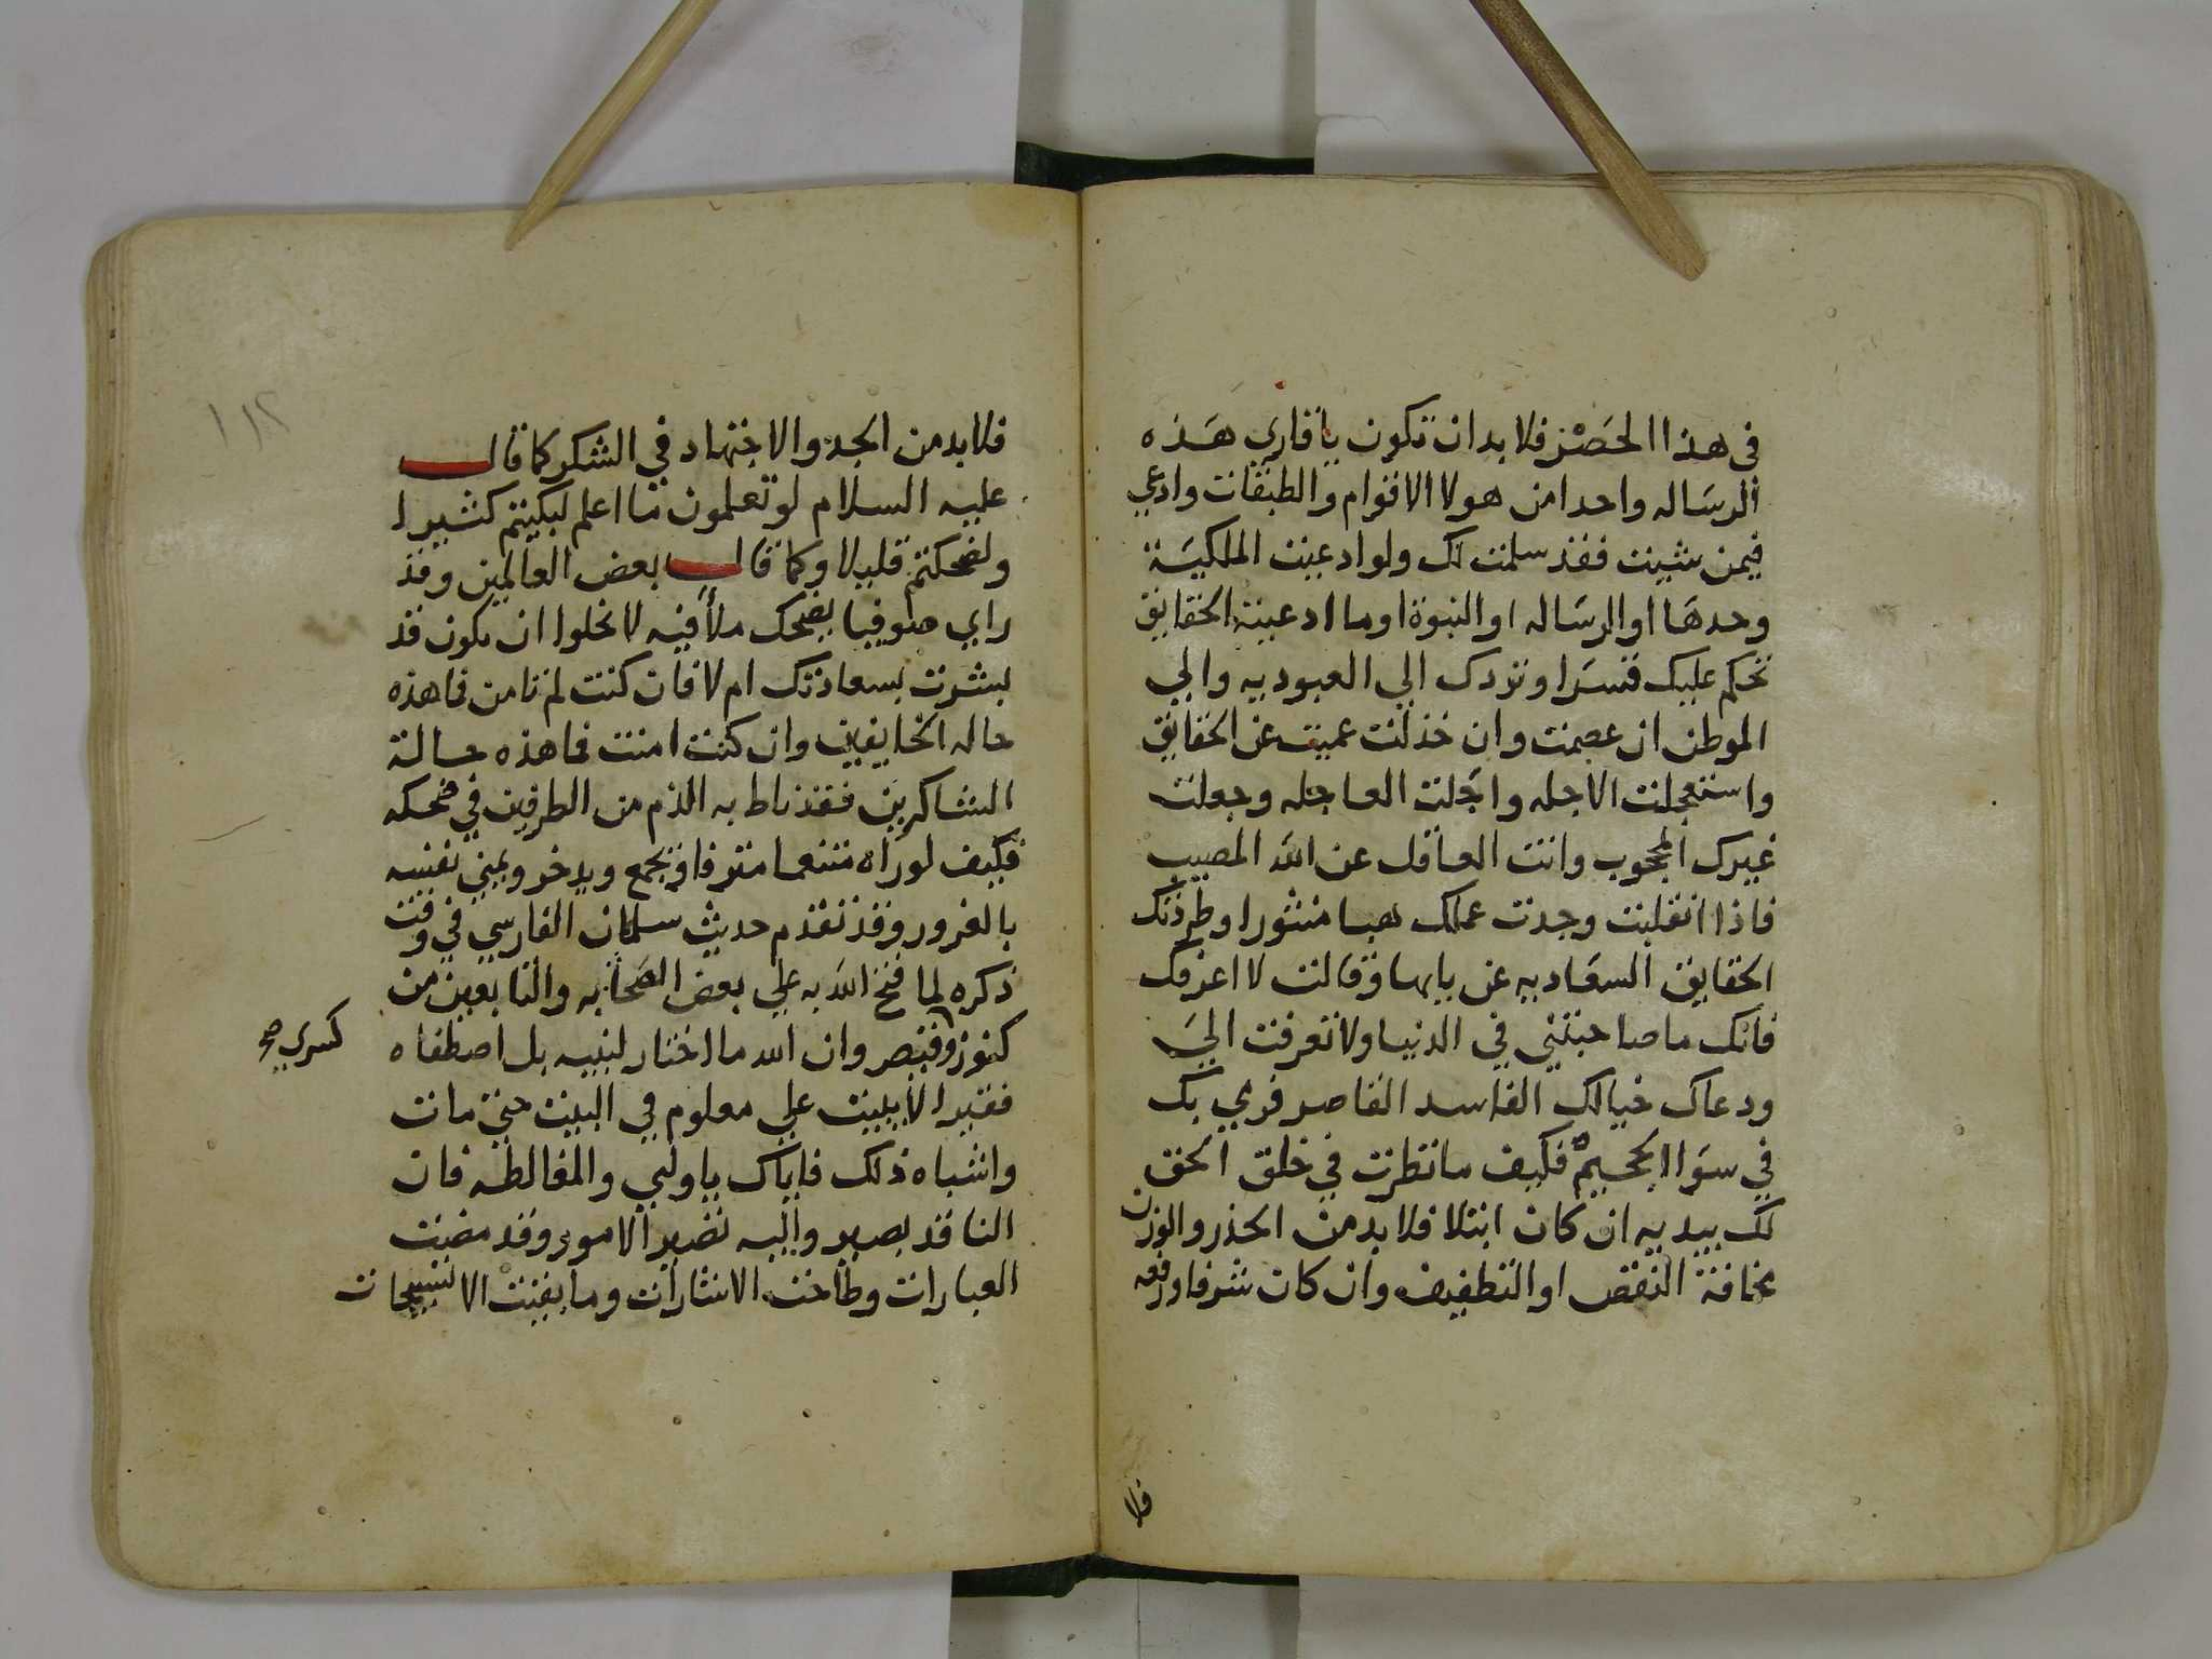 في هذا الحصر فلا بد ان تكون يا قاري هذه
الرساله واحدا من هولا الاقوام والطبقات وادعي
فيمن شيت فقد سلمت لك ولو ادعيت الملكية
وحدها او الرساله او النبوة او ما ادعيته الحقايق
تحكم عليك قسرا وتردك الي العبوديه والي
الموطن ان عصمت وان خذلت عميت عن الحقايق
واستعجلت الاجله واجلت العاجله وجعلت
غيرك المحجوب وانت الغافل عن الله المصيب
فاذا انقلبت وجدت عملك هبا منثورا وطردتك
الحقايق السعاديه عن بابها وقالت لا اعرفك
فانك ما صاحبتني في الدنيا ولا تعرفت الي
ودعاك خيالك الفاسد القاصر فرمي بك
في سوا الجحيم فكيف ما نظرت في خلق الحق
لك بيديه ان كان ابتلا فلا بد من الحذر والوزن
مخافة النقص او التطفيف وان كان شرفا ورفعه
فلا
١١٢
فلا بد من الجد والاجتهاد في الشكر كما قال
عليه السلام لو تعلمون ما اعلم لبكيتم كثيرا
ولضحكتم قليلا وكما قال بعض العالمين وقد
راي صوفيا يضحك ملأ فيه لا تخلوا ان تكون قد
بشرت بسعادتك ام لا فان كنت لم تامن فما هذه
حاله الخايفين وان كنت امنت فما هذه حالة
الشاكرين فقد ناط به الذم من الطرفين في ضحكه
فكيف لو راه متنعما مترفا ويجمع ويدخر ويمني نفسه
بالغرور وقد تقدم حديث سلمان الفارسي في وقت
ذكره لما فتح الله به علي بعض الصحابه والتابعين من
كنوز وقيصر وان الله ما اختار لنبيه بل اصطفاه
كسري صح
فقيرا لا يبيت علي معلوم في البيت حتي مات
واشباه ذلك فاياك يا وليي والمغالطه فان
الناقد بصير واليه تصير الامور وقد مضت
العبارات وطاحت الاشارات وما بقيت الا تسبيحات